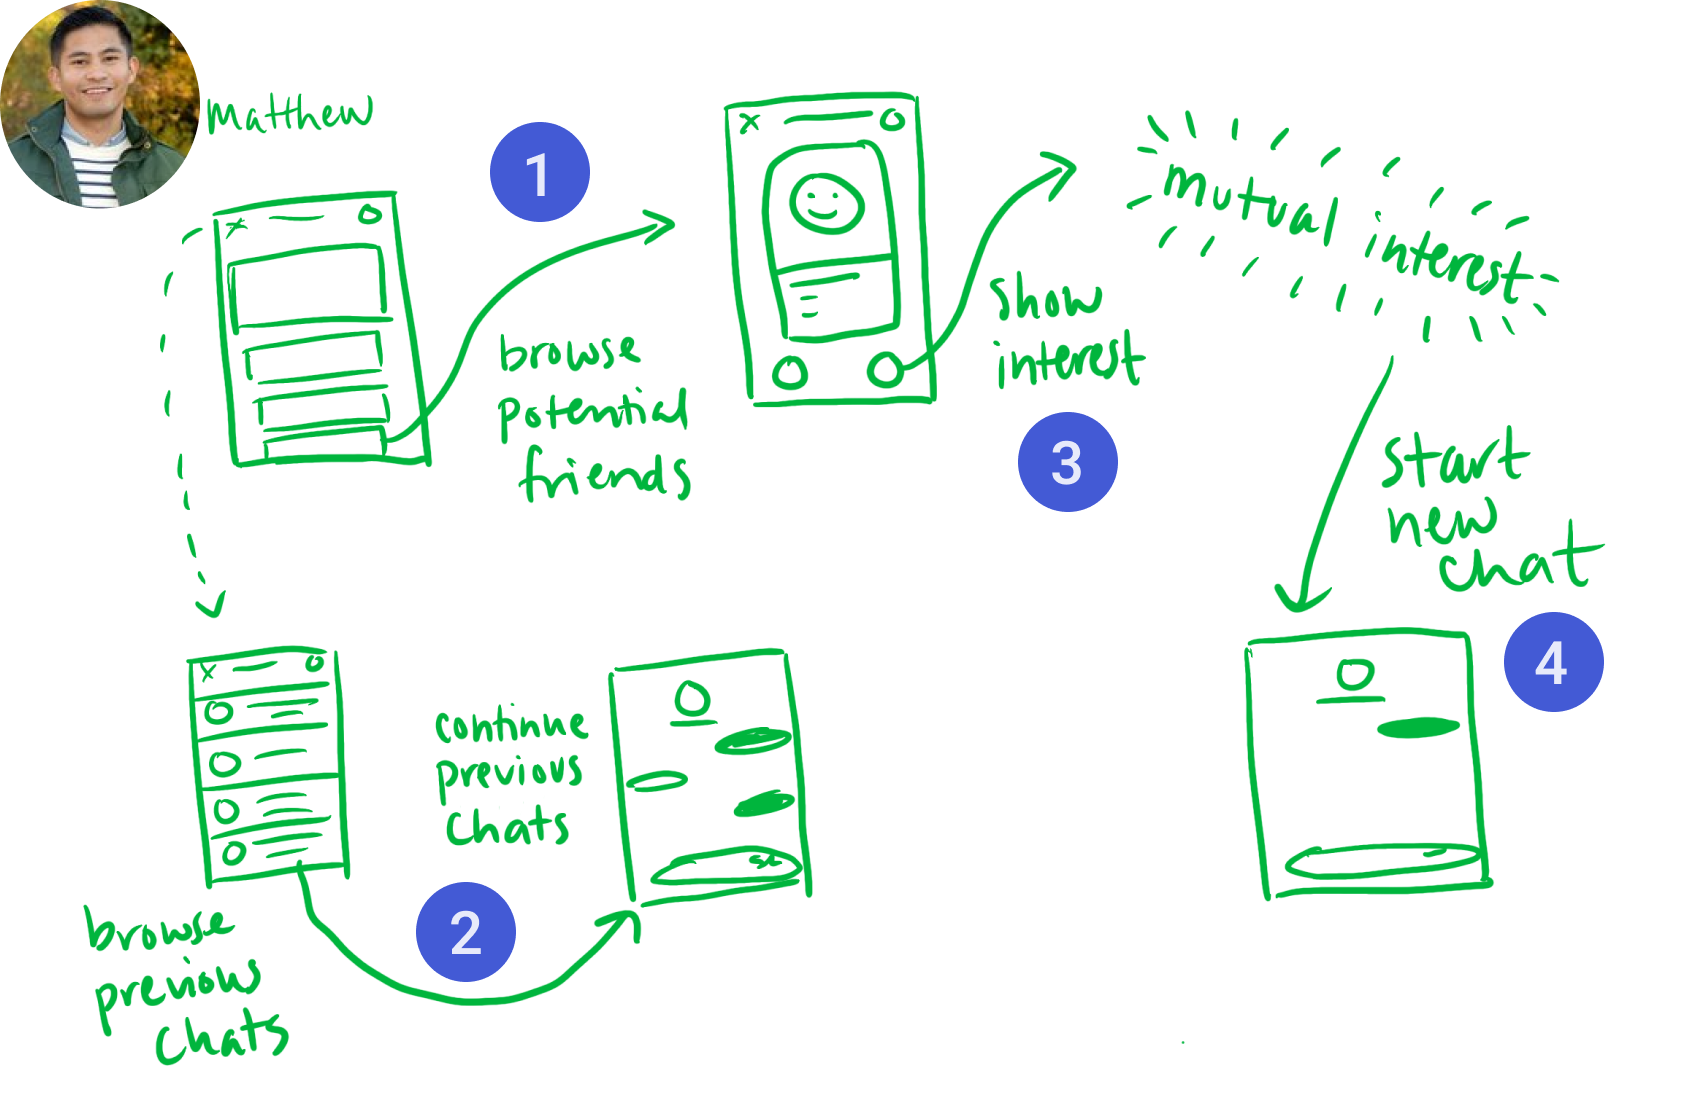 matthew
1
browse
potential
friends
show
interest
3
mutual interest
start
new
chat
4
browse
previous
chats
2
continue
previous
chats